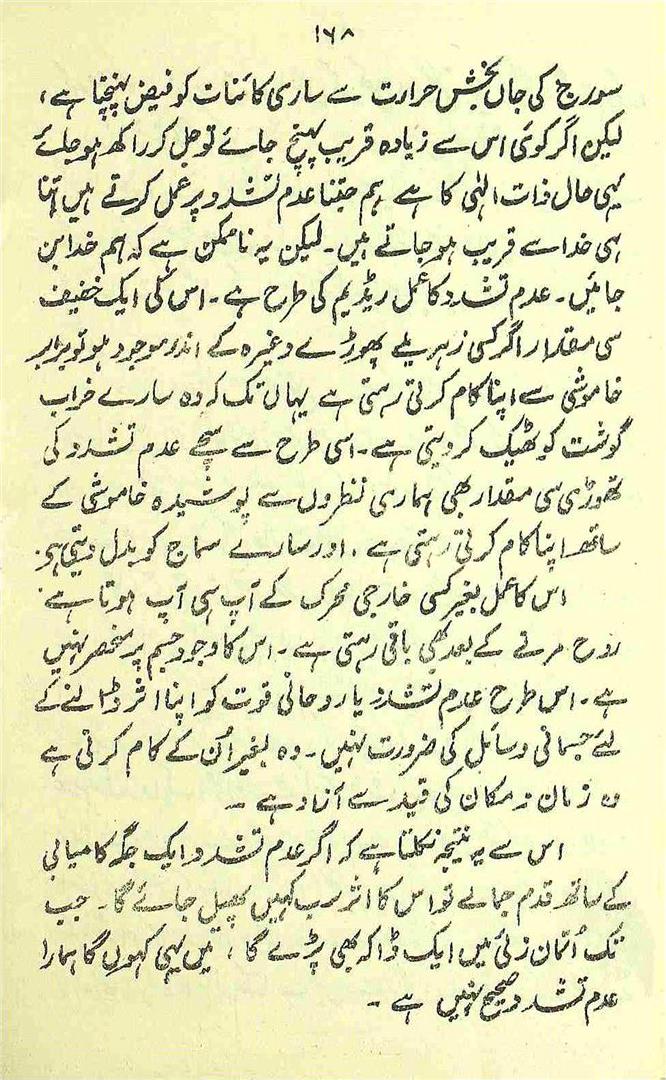 ۱۶۸
سورج کی جاں بخش حرارت سے ساری کائنات کو فیض پہنچتا ہے،
لیکن اگر کوئی اس سے زیادہ قریب پہنچ جائے تو جل کر راکھ ہو جائے
یہی حال ذات الٰہی کا ہے ہم جتنا عدم تشدد پر عمل کرتے ہیں اتنا
ہی خدا سے قریب ہو جاتے ہیں۔ لیکن یہ ناممکن ہے کہ ہم خدا بن
جائیں۔ عدم تشدد کا عمل ریڈیم کی طرح ہے۔ اس کی ایک خفیف
سی مقدار اگر کسی زہریلے پھوڑے وغیرہ کے اندر موجود ہو تو برابر
خاموشی سے اپنا کام کرتی رہتی ہے یہاں تک کہ وہ سارے خراب
گوشت کو ٹھیک کر دیتی ہے۔ اسی طرح سے سچے عدم تشدد کی
تھوڑی سی مقدار بھی ہماری نظروں سے پوشیدہ خاموشی کے
ساتھ اپنا کام کرتی رہتی ہے، اور سارے سماج کو بدل دیتی ہے۔
اس کا عمل بغیر کسی خارجی محرک کے آپ ہی آپ ہوتا ہے۔
روح مرنے کے بعد بھی باقی رہتی ہے۔ اس کا وجود جسم پر منحصر نہیں
ہے۔ اس طرح عدم تشدد یا روحانی قوت کو اپنا اثر ڈالنے کے
لئے جسمانی وسائل کی ضرورت نہیں۔ وہ بغیر اُن کے کام کرتی ہے
وہ زمان و مکان کی قید سے آزاد ہے۔
اس سے یہ نتیجہ نکلتا ہے کہ اگر عدم تشدد ایک جگہ کامیابی
کے ساتھ قدم جمالے تو اس کا اثر سب کہیں پھیل جائے گا۔ جب
تک اُتمان زئی میں ایک ڈاکہ بھی پڑے گا، میں یہی کہوں گا ہمارا
عدم تشدد صحیح نہیں ہے۔